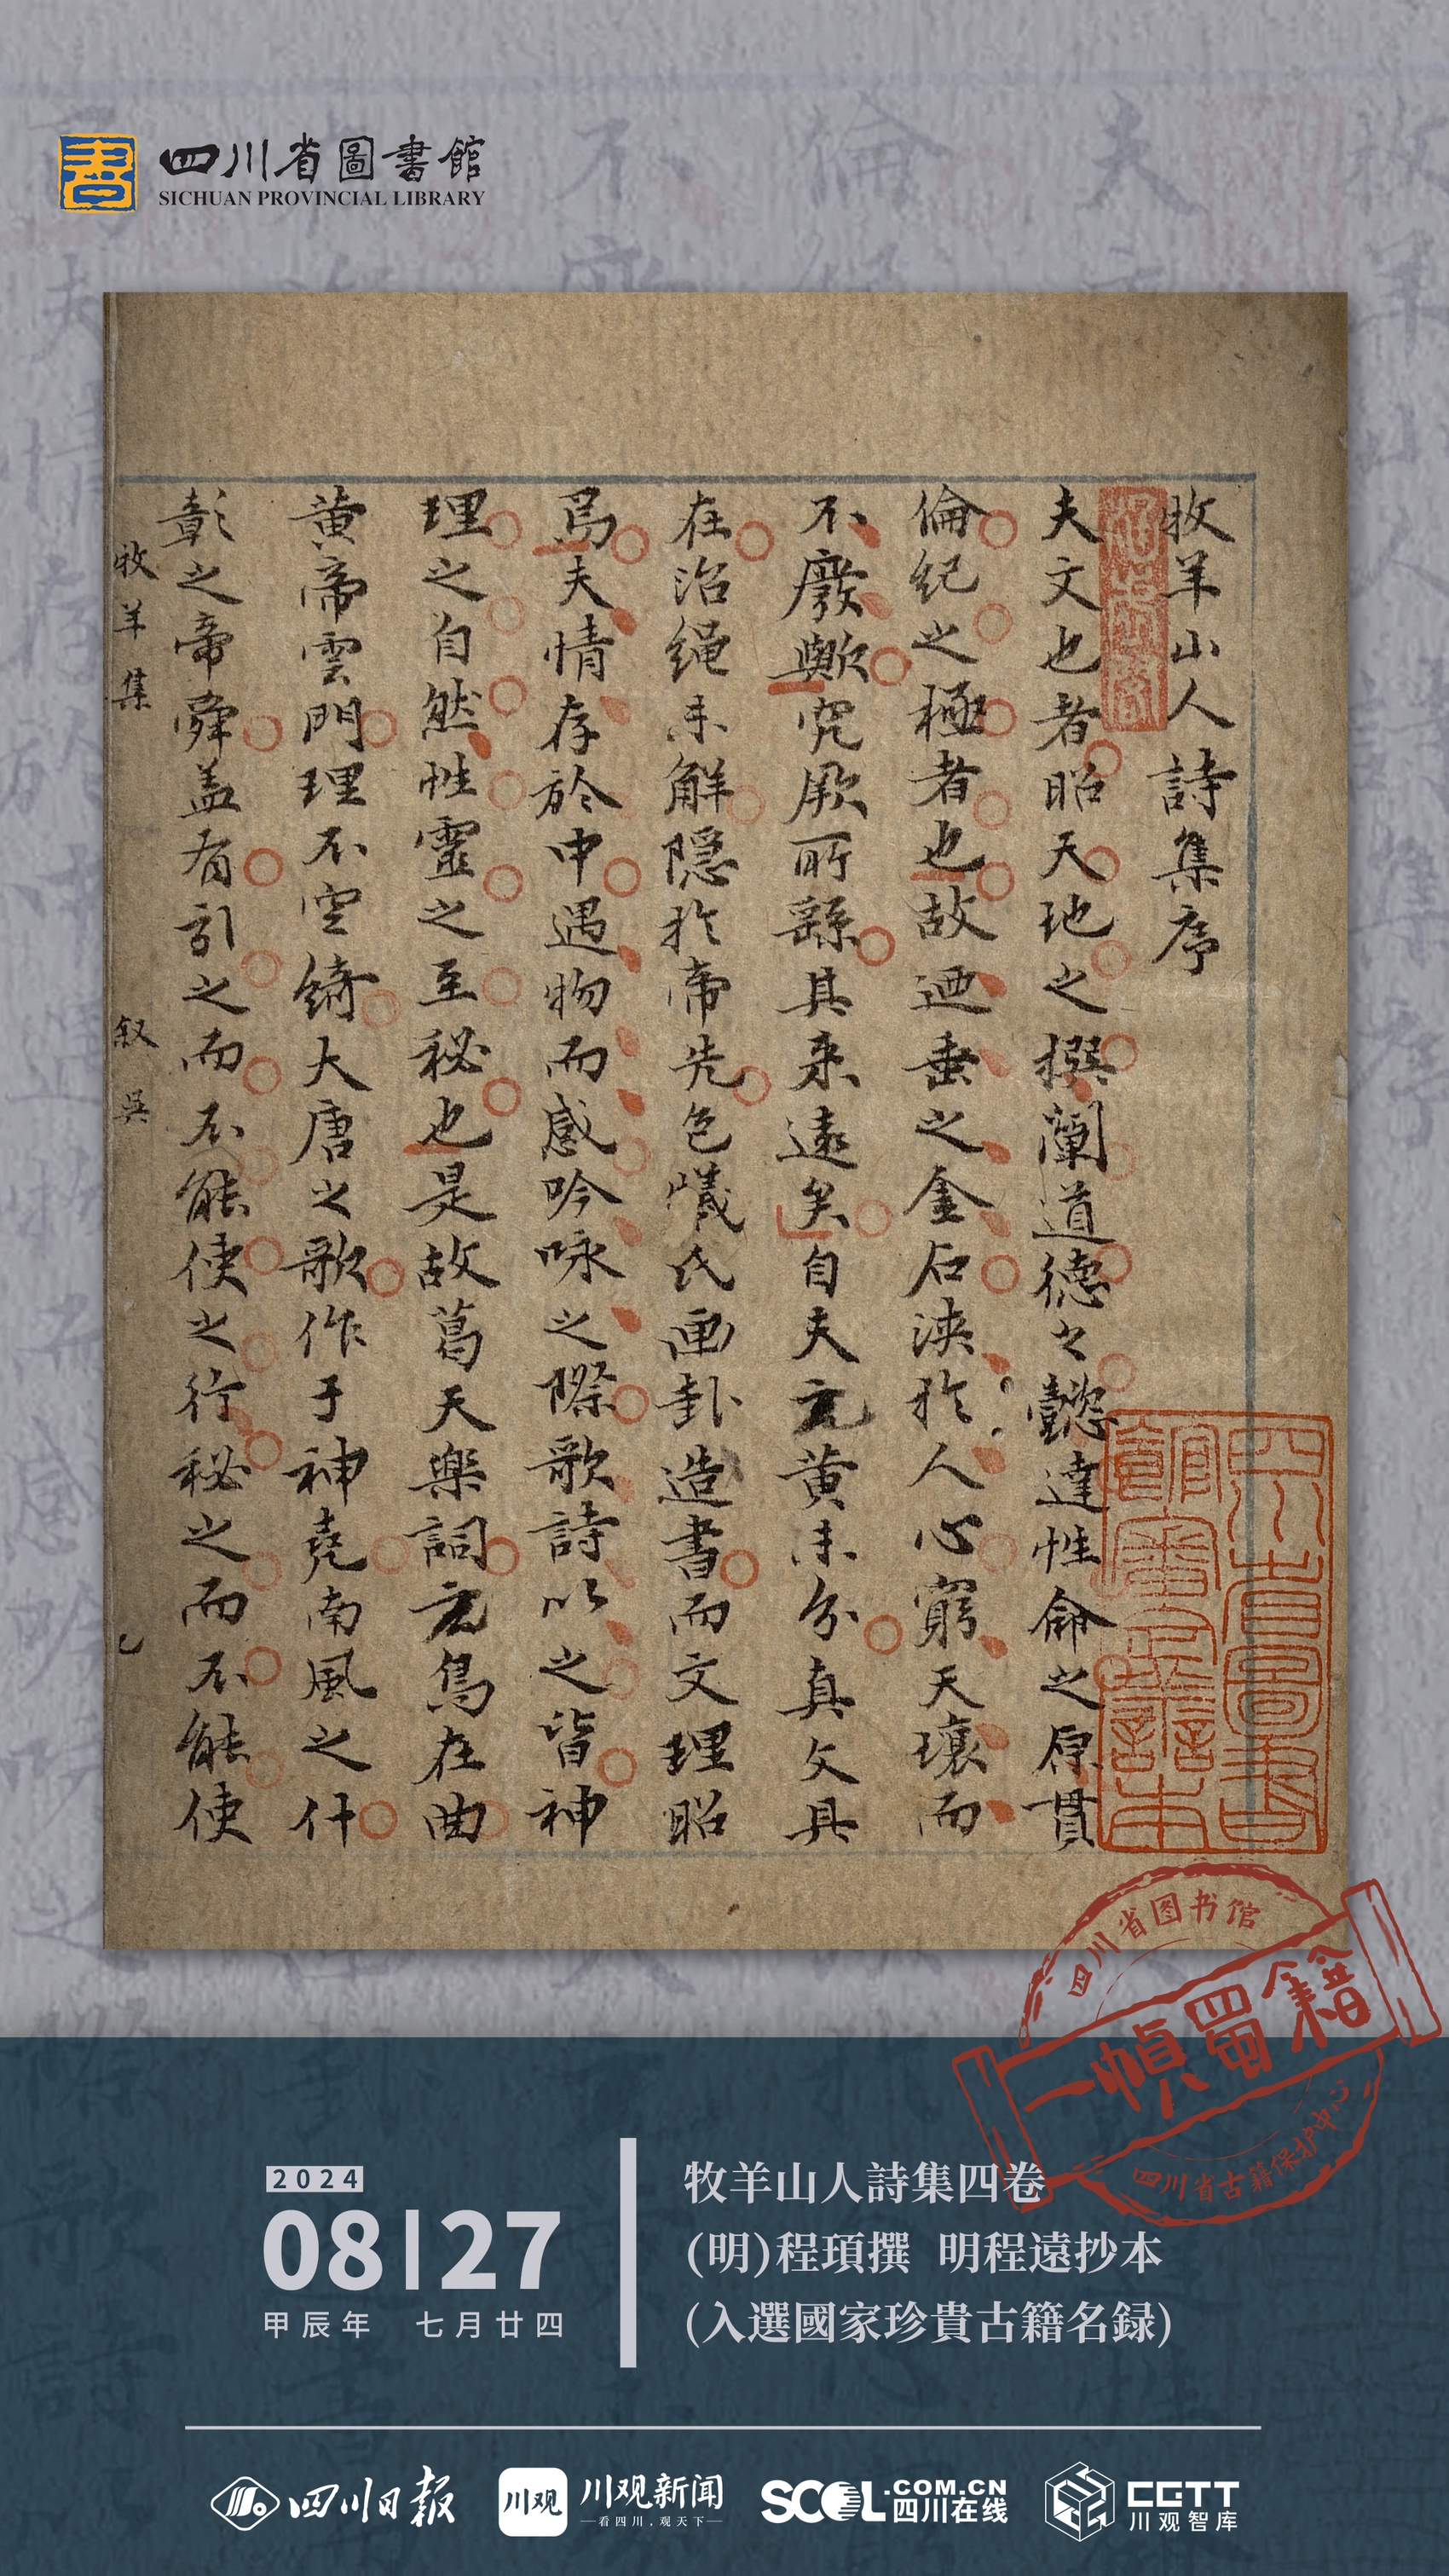 四川省圖書館
SICHUAN PROVINCIAL LIBRARY
牧羊山人詩集序
夫文也者昭天地之撰闡道德之懿達性命之原貫
倫紀之極者也故迺垂之金石浹扵人心窮天壤而
不廢歟究厥所繇其来遠矣自夫玄黄未分真文具
在治绳未解隠扵帝先包犧氏画卦造書而文理昭
焉夫情存於中遇物而感吟咏之際歌詩以之皆神
理之自然性靈之至秘也是故葛天樂詞玄鳥在曲
黄帝雲門理不空綺大唐之歌作于神堯南風之什
彰之帝舜盖有引之而不能使之行秘之而不能使
牧羊集 叙 吳
四川省圖書館善本
四川省图书馆
一幀蜀籍
四川省古籍保护中心
2024
08|27
甲辰年 七月廿四
牧羊山人詩集四卷
(明)程頊撰 明程遠抄本
(入選國家珍貴古籍名録)
四川日报
川观
川观新闻
看四川,观天下
SCOL.COM.CN
四川在线
CGTT
川观智库